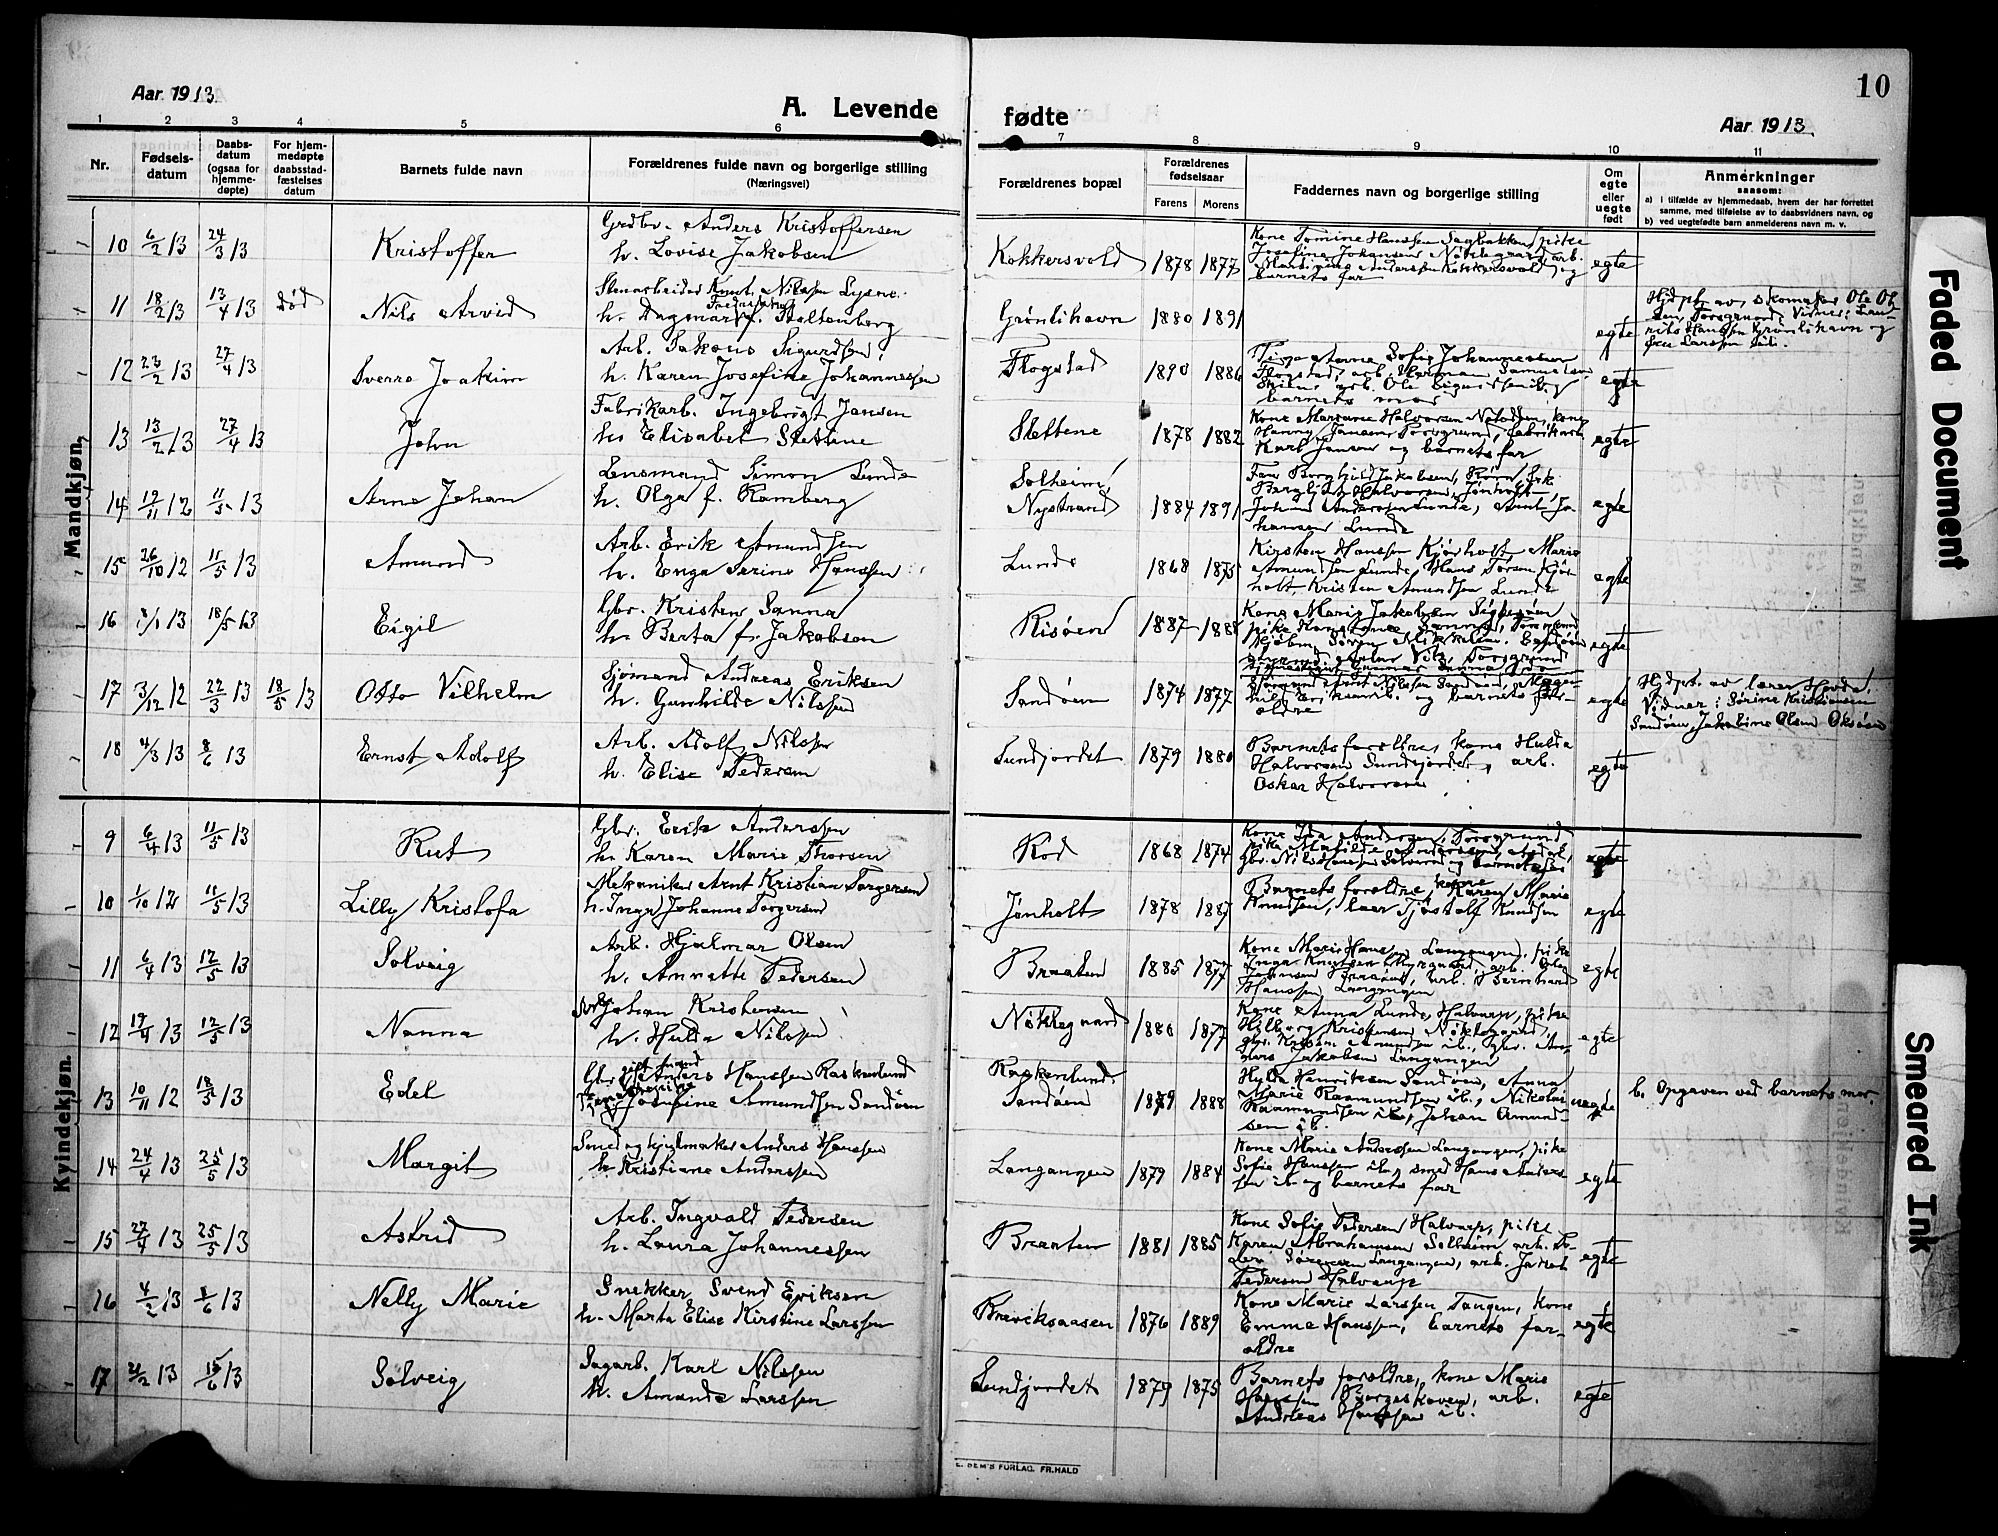 10
Aar. 1913
A. Levende
fødte
Aar 1913
1 2 3 4 5 6 7 8 9 10 11
Nr.
Fødsels-
datum
Daabs-
datum
(ogsaa for
hjemme-
døpte)
For hjem-
medøpte
daabsstad-
fæstelses
datum
Barnets fulde navn
Forældrenes fulde navn og borgerlige stilling
(Næringsvei)
Forældrenes bopæl
Forældrenes
fødselsaar
Farens Morens
Faddernes navn og borgerlige stilling
Om
egte
eller
uegte
født
Anmerkninger
saasom:
a) i tilfælde av hjemmedaab, hvem der har forrettet
samme, med tilføielse av to daabsvidners navn, og
b) ved uegtefødte barn anmelderens navn m. v.
Mandkjøn.
10 6/2 13 24/3 13 Kristoffer
Grdbr. Anders Kristoffersen
h. Lovise Jakobsen
Kokkersvold 1878 1877
Kone Tomine Hanssen Sagbakken, pike
Josefine Johansen Nøklegaard, arb.
barnets far
egte
11 18/2 13 13/4 13 død Nils Arvid
Stenarbeider Knut Nilssen Lysne
h. Dagmar f. Stoltenberg
Grønlihavn 1880 1891
egte
Hjdpt. av skomaker Ole Ol-
sen Porsgrund. Vidner: Lau-
rits Hanssen Grønlihavn og
Larssen ib.
12 23/2 13 27/4 13 Sverre Joakim
Arb. Jakons Sigurdsen
h. Karen Josefine Johannessen
Flogstad 1890 1886
Pige Anna Sofie Johannessen
Flogstad, arb. Herman Samuelsen
Skiens arb. Ole Sigurdsen og
barnets mor
egte
13 13/2 13 27/4 13 John
Fabrikarb. Ingebrigt Jansen
h. Elisabet Slettene
Slettene 1878 1882
Kone Mariane Halvorsen, kone
Hanny Jansen Porsgrund, fabrikarb.
Karl Jansen og barnets far
egte
14 19/11 12 11/5 13 Arne Johan
Lensmand Simon Lunde
h. Olga f. Ramberg
Solheim,
Nystrand 1884 1891
Fru Borghild Jakobsen, frk.
Bergljot Halvorsen, Jønholt
Johan Andersen Lunde, Arnt Jo-
hansen Lunde
egte
15 26/10 12 11/5 13 Amund
Arb. Erik Amundsen
h. Enga Serine Hanssen
Lunde 1868 1875
Kirsten Hanssen Kjørholt, Marie
Amundsen Lunde, Hans Torsen Kjør-
holt, Kristen Amundsen Lunde
egte
16 2/1 13 18/5 13 Eigil
Gbr. Kristen Sanna
h. Berta f. Jakobsen
Risøen 1887 1888
Kone Marie Jakobsen
egte
17 3/12 12 22/3 13 18/5 13 Otto Vilhelm
Sjømand Andreas Eriksen
h. Gunhilde Nilssen
Sandøen 1874 1877
og barnets for-
ældre
egte
Hjdpt. av lærer Hovde.
Vidner: Sørine Kristiansen
Sandøen, Jakobine Olsen Oksøen
18 4/3 13 8/6 13 Ernst Adolf
Arb. Adolf Nilsen
h. Elise Pedersen
Lundjordet 1879 1880
Barnets forældre, kone Hulda
Halvorsen Lundejordet, arb.
Oskar Halvorsen
egte
Kvindekjøn.
9 6/4 13 11/5 13 Rut
Gbr. Erik Anderssen
h. Karen Marie Thorsen
Rød 1868 1874
Kone Ida Andersen, Porsgrund
pike Matilde Anderssen,
gbr. Nils Hanssen og barnets far
egte
10 1/10 12 11/5 13 Lilly Kristofa
Mekaniker Arnt Kristian Torgersen
h. Inga Johanne Torgersen
Jønholt 1878 1887
Barnets forældre, kone Karen Marie
Knudsen, lærer Tjøstolf Knudsen
egte
11 6/4 13 12/5 13 Solveig
Arb. Hjalmar Olsen
h. Annette Pedersen
Braaten 1885 1877
Kone Marie Hanssen Langangen, pike
Inga Knutsen Myrgaard, arb. Olaf
Johnsen, arb. Bernhard
Hanssen Langangen
egte
12 17/4 13 12/5 13 Nanna
Johan Kristensen
h. Hulda Nilssen
Nøklegaard 1886 1877
Kone Anna Lunde, Halvarp, pike
Hilborg Kristensen Nøklegaard,
gbr. Kristen Amundsen ib., gbr. An-
ders Jakobsen Langangen
egte
13 10/11 12 18/5 13 Edel
Gbr. gift mand Anders Hanssen Raskenlund
Josefine Amundsen Sandøen
Raskenlund.
Sandøen 1879 1888
Hylda Henriksen Sandøen, Anna
Marie Rasmundsen ib., Nikolai
Rasmundsen ib., Johan Amund-
sen ib.
uegte
b. Opgaven ved barnets mor.
14 24/4 13 25/5 13 Margit
Smed og hjulmaker Anders Hanssen
h. Kristiane Anderssen
Langangen 1879 1884
Kone Marie Anderssen Langangen, pike
Sofie Hanssen ib., smed Hans Anders-
sen ib. og barnets far
egte
15 27/4 13 25/5 13 Astrid
Arb. Ingvald Pedersen
h. Laura Johannessen
Braaten 1881 1885
Kone Sofie Pedersen, Halvarp, pike
Karen Abrahamsen Solheim, arb. Pe-
der Sørensen Langangen, arb. Jakob
Pedersen Halvarp
egte
16 4/2 13 8/6 13 Nelly Marie
Snekker Svend Eriksen
h. Marta Elise Kirstine Larssen
Breviksaasen 1876 1889
Kone Marie Larssen Tangen, kone
Emma Hanssen, barnets for-
ældre
egte
17 2/2 13 15/6 13 Solveig
Sagarb. Karl Nilssen
h. Amanda Larssen
Lundjordet 1879 1875
Barnets forældre, kone Marie
Hanssen Borgeskoven, arb.
Andreas Hanssen ib.
egte
E. SEM'S FORLAG. FR.HALD
Faded Document
Smeared Ink